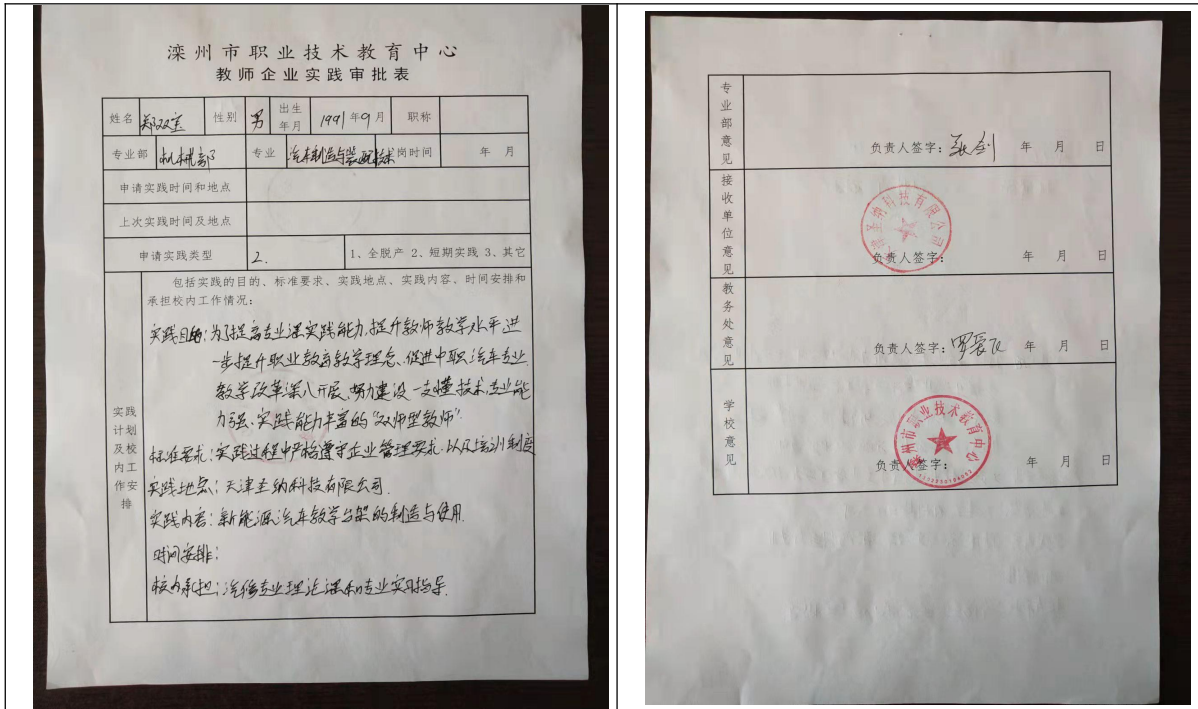 滦州市职业技术教育中心
教师企业实践审批表
姓名 郑双宝 性别 男 出生年月 1991年9月 职称
专业部 机械部 专业 汽车制造与装配技术 岗时间 年 月
申请实践时间和地点
上次实践时间及地点
申请实践类型 2. 1、全脱产 2、短期实践 3、其它
实践计划及校内工作安排
包括实践的目的、标准要求、实践地点、实践内容、时间安排和
承担校内工作情况:
实践目的:为了提高专业课实践能力,提升教师教学水平进
一步提升职业教育教学理念、促进中职汽车专业
教学改革深入开展,努力建设一支懂技术,专业能
力强、实践能力丰富的“双师型教师”.
标准要求:实践过程中严格遵守企业管理要求.以及培训制度
实践地点:天津圣纳科技有限公司.
实践内容:新能源汽车教学台架的制造与使用.
时间安排:
校内承担:汽修专业理论课和专业实习指导.
专业部意见
负责人签字: 年 月 日
接收单位意见
圣纳科技有限公司
负责人签字: 年 月 日
教务处意见
负责人签字: 年 月 日
学校意见
滦州市职业技术教育中心
负责人签字: 年 月 日